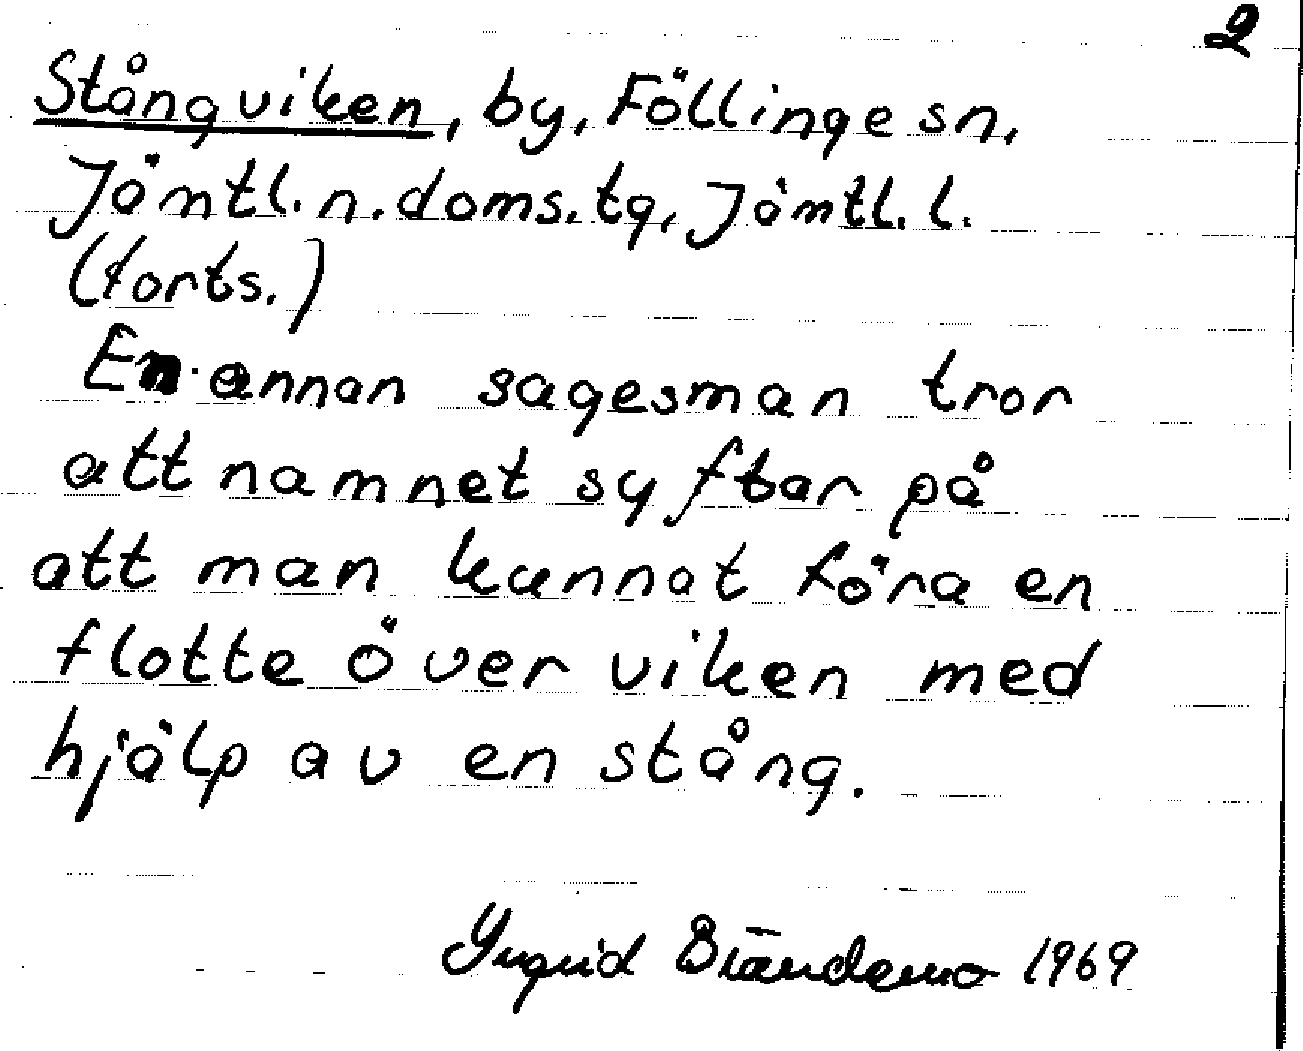 2
Stångviken, by, Föllinge sn,
Jämtl. n. doms. tg, Jämtl. l.
(forts.)
En annan sagesman tror
att namnet syftar på
att man kunnat föra en
flotte över viken med
hjälp av en stång.
Ingrid Brändemo 1969